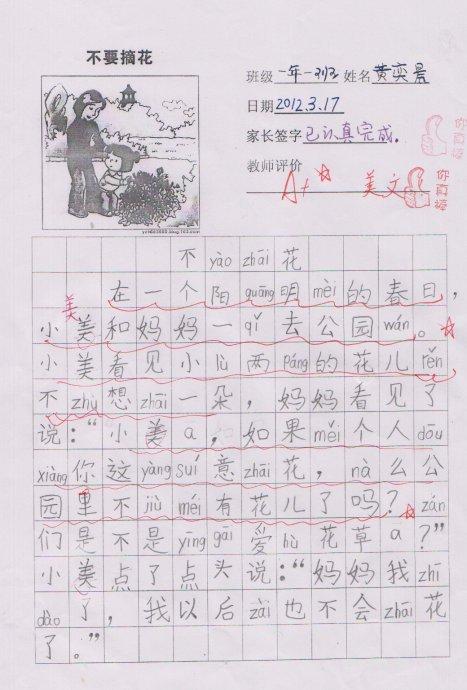 不要摘花
班级 一年一班 姓名 黄奕晨
日期 2012.3.17
家长签字 已认真完成.
教师评价
A+ 美文
你真棒
你真棒
不 yào zhāi 花
在一个阳 guāng 明 mèi 的春日，
美
小美和妈妈一 qǐ 去公园 wán 。
小美看见小 lù 两 páng 的花儿 rěn
不 zhù 想 zhāi 一朵，妈妈看见了
说：“小美 a，如果 měi 个人 dōu
xiàng 你这 yàng suí 意 zhāi 花，nà 么公
园里不 jiù méi 有花儿了吗？zán
们是不是 yīng gāi 爱 hù 花草 a？”
小美点了点头说：“妈妈我 zhī
dào 了，我以后 zài 也不会 zhāi 花
了。”